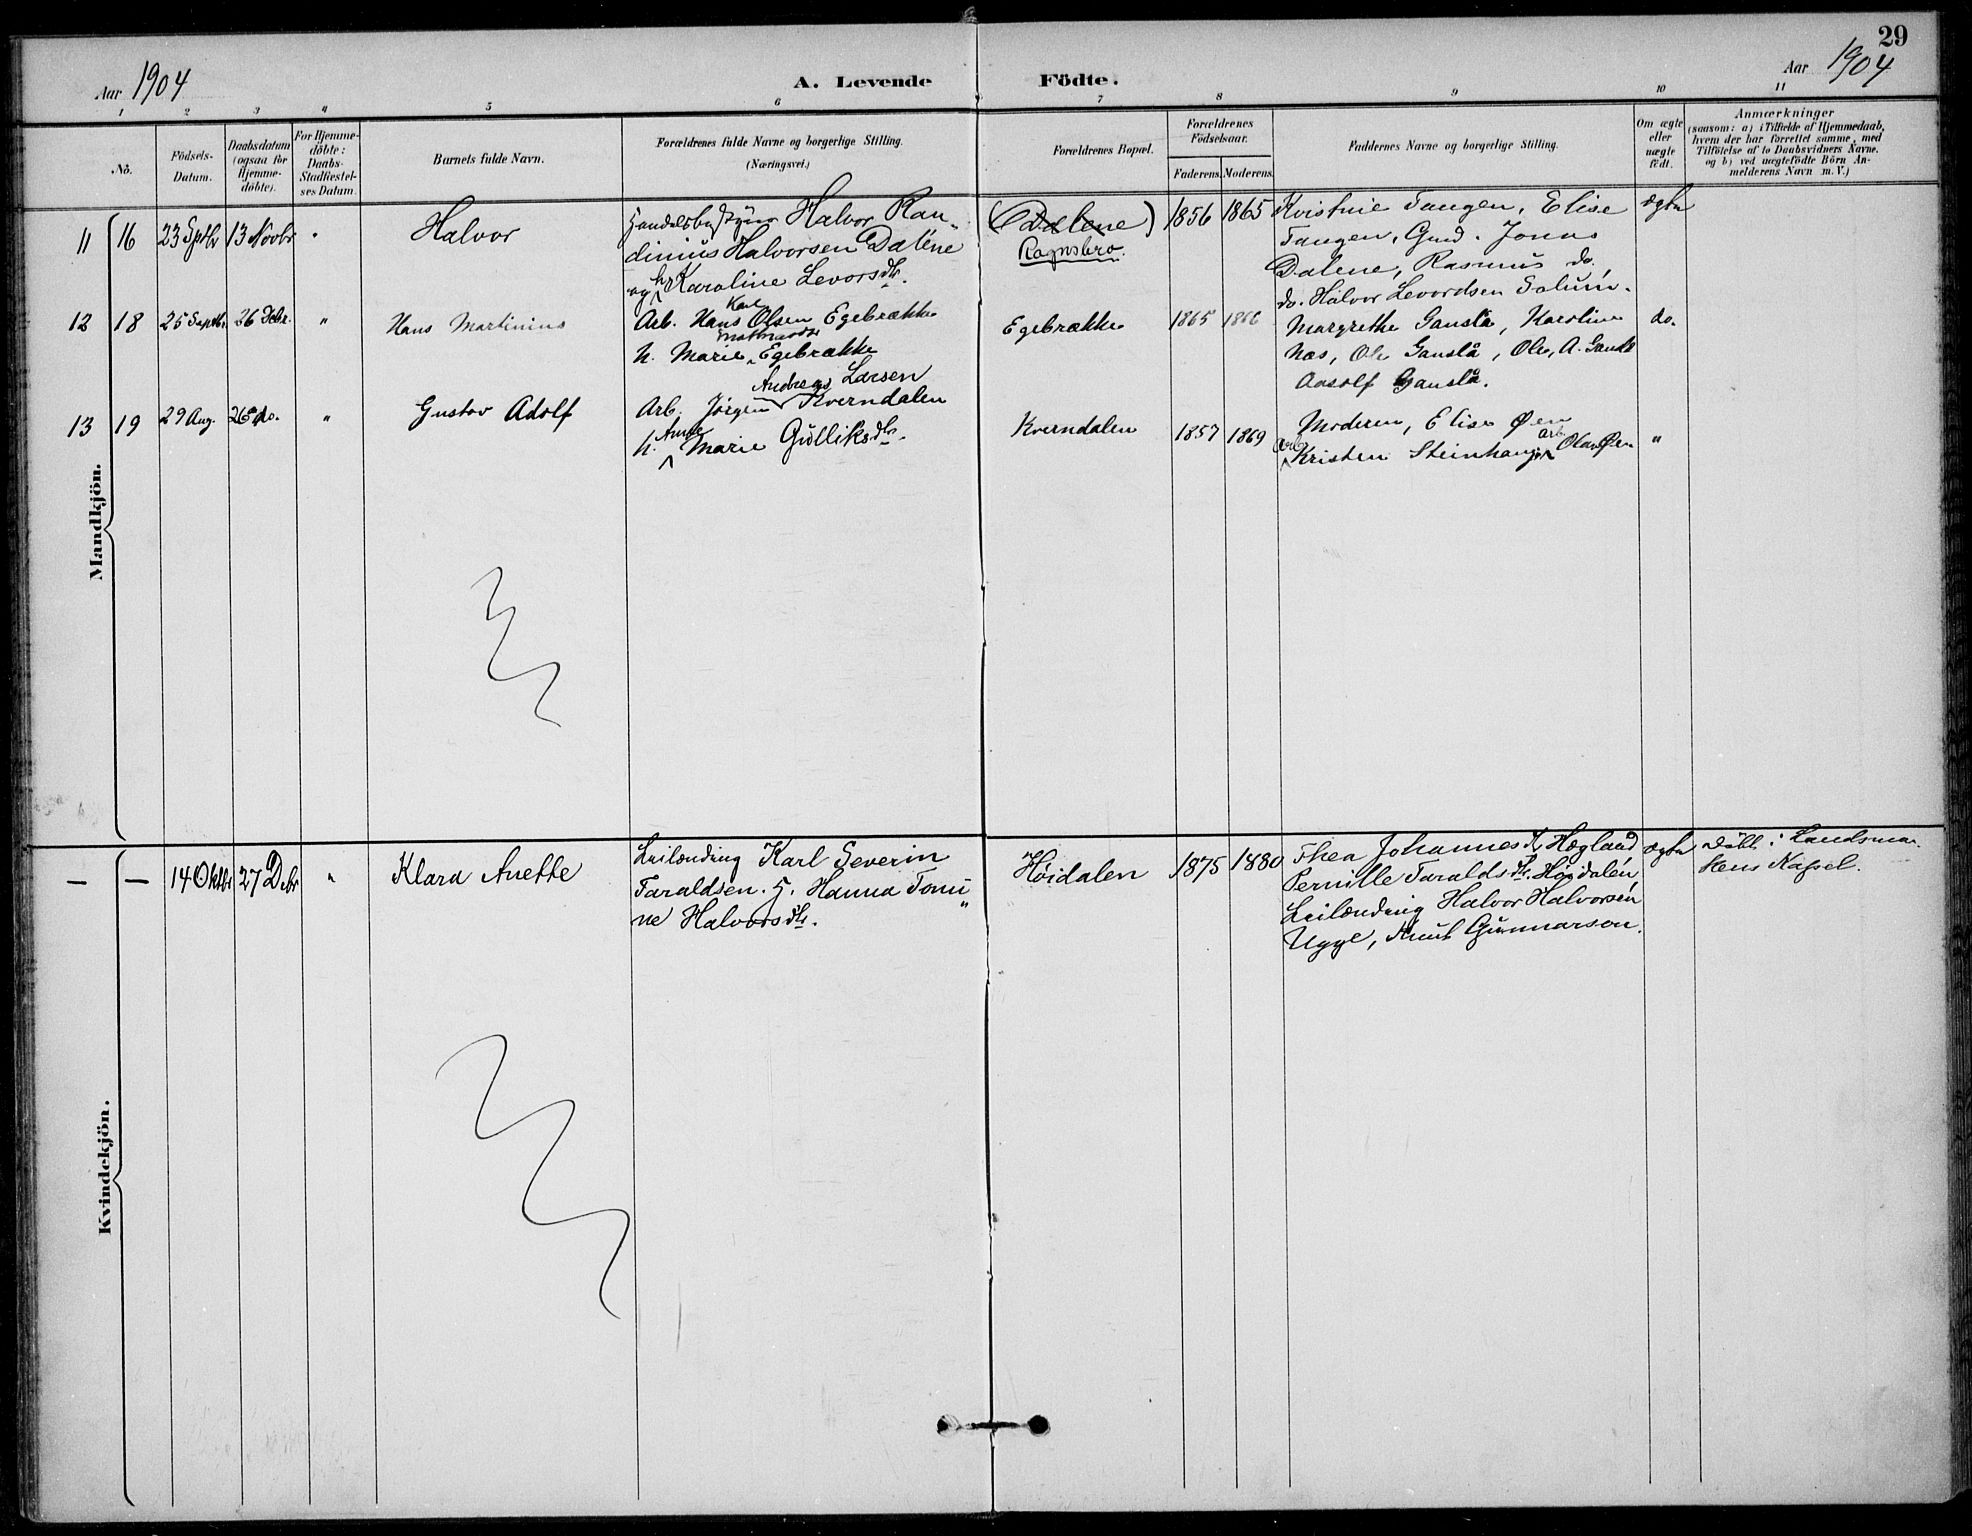 29
Aar 1904
A. Levende Födte.
Aar 1904
1 2 3 4 5 6 7 8 9 10 11
No.
Födsels-
Datum.
Daabsdatum
(ogsaa for
Hjemme-
döbte).
For Hjemme-
döbte:
Daabs-
Stadfæstel-
ses Datum.
Barnets fulde Navn.
Forældrenes fulde Navne og borgerlige Stilling.
(Næringsvei.)
Forældrenes Bopæl.
Forældrenes
Födselsaar.
Faderens. Moderens.
Faddernes Navne og borgerlige Stilling.
Om ægte
eller
uægte
födt.
Anmærkninger
(saasom: a) i Tilfælde af Hjemmedaab,
hvem der har forrettet samme, med
Tilföielse af to Daabsvidners Navne,
og b) ved uægtefödte Börn An-
melderens Navn m. V.)
Mandkjön.
11 16 23 Sptbr 13 Novbr "
Halvor
Halvor Ran-
dinius Halvorsen Dalene
og h. Karoline Levorsdtr.
(Dalene)
Ragnsbro.
1856 1865
Kristine Tangen, Elise
Tangen, Gmd. Jonas
Dalene, Rasmus do.
do. Halvor Levordsen Solum.
ægte
12 18 25 Septbr. 26 Debr. "
Hans Martinius
Karl
Arb. Hans Olsen Egebrække
h. Marie Egebrække
Egebrække
1865 1866
Margrethe Ganslå, Karoline
Næs, Ole Ganslå, Ole A.
Aasolf Ganslå.
do.
13 19 29 Aug. 26 do. "
Gustav Adolf
Andreas Larsen
Arb. Jörgen Kverndalen
h. Anne Marie Gulliksdtr.
Kverndalen
1857 1869
Moderen, Elise Øen
Arb. Kristen Steinhaug, Arb. Olav Øen
"
Kvindekjön.
— — 14 Oktbr 27 Debr "
Klara Anette
Leilænding Karl Severin
Taraldsen. H. Hanna Tomi-
ne Halvorsdtr.
Höidalen
1875 1880
Thea Johannesdtr Hægland
Pernille Taraldsdtr. Höidalen
Leilænding Halvor Halvorsen
Ugge, Knut Gunnarson.
ægte
Döbt i Landsmar-
kens Kapel.